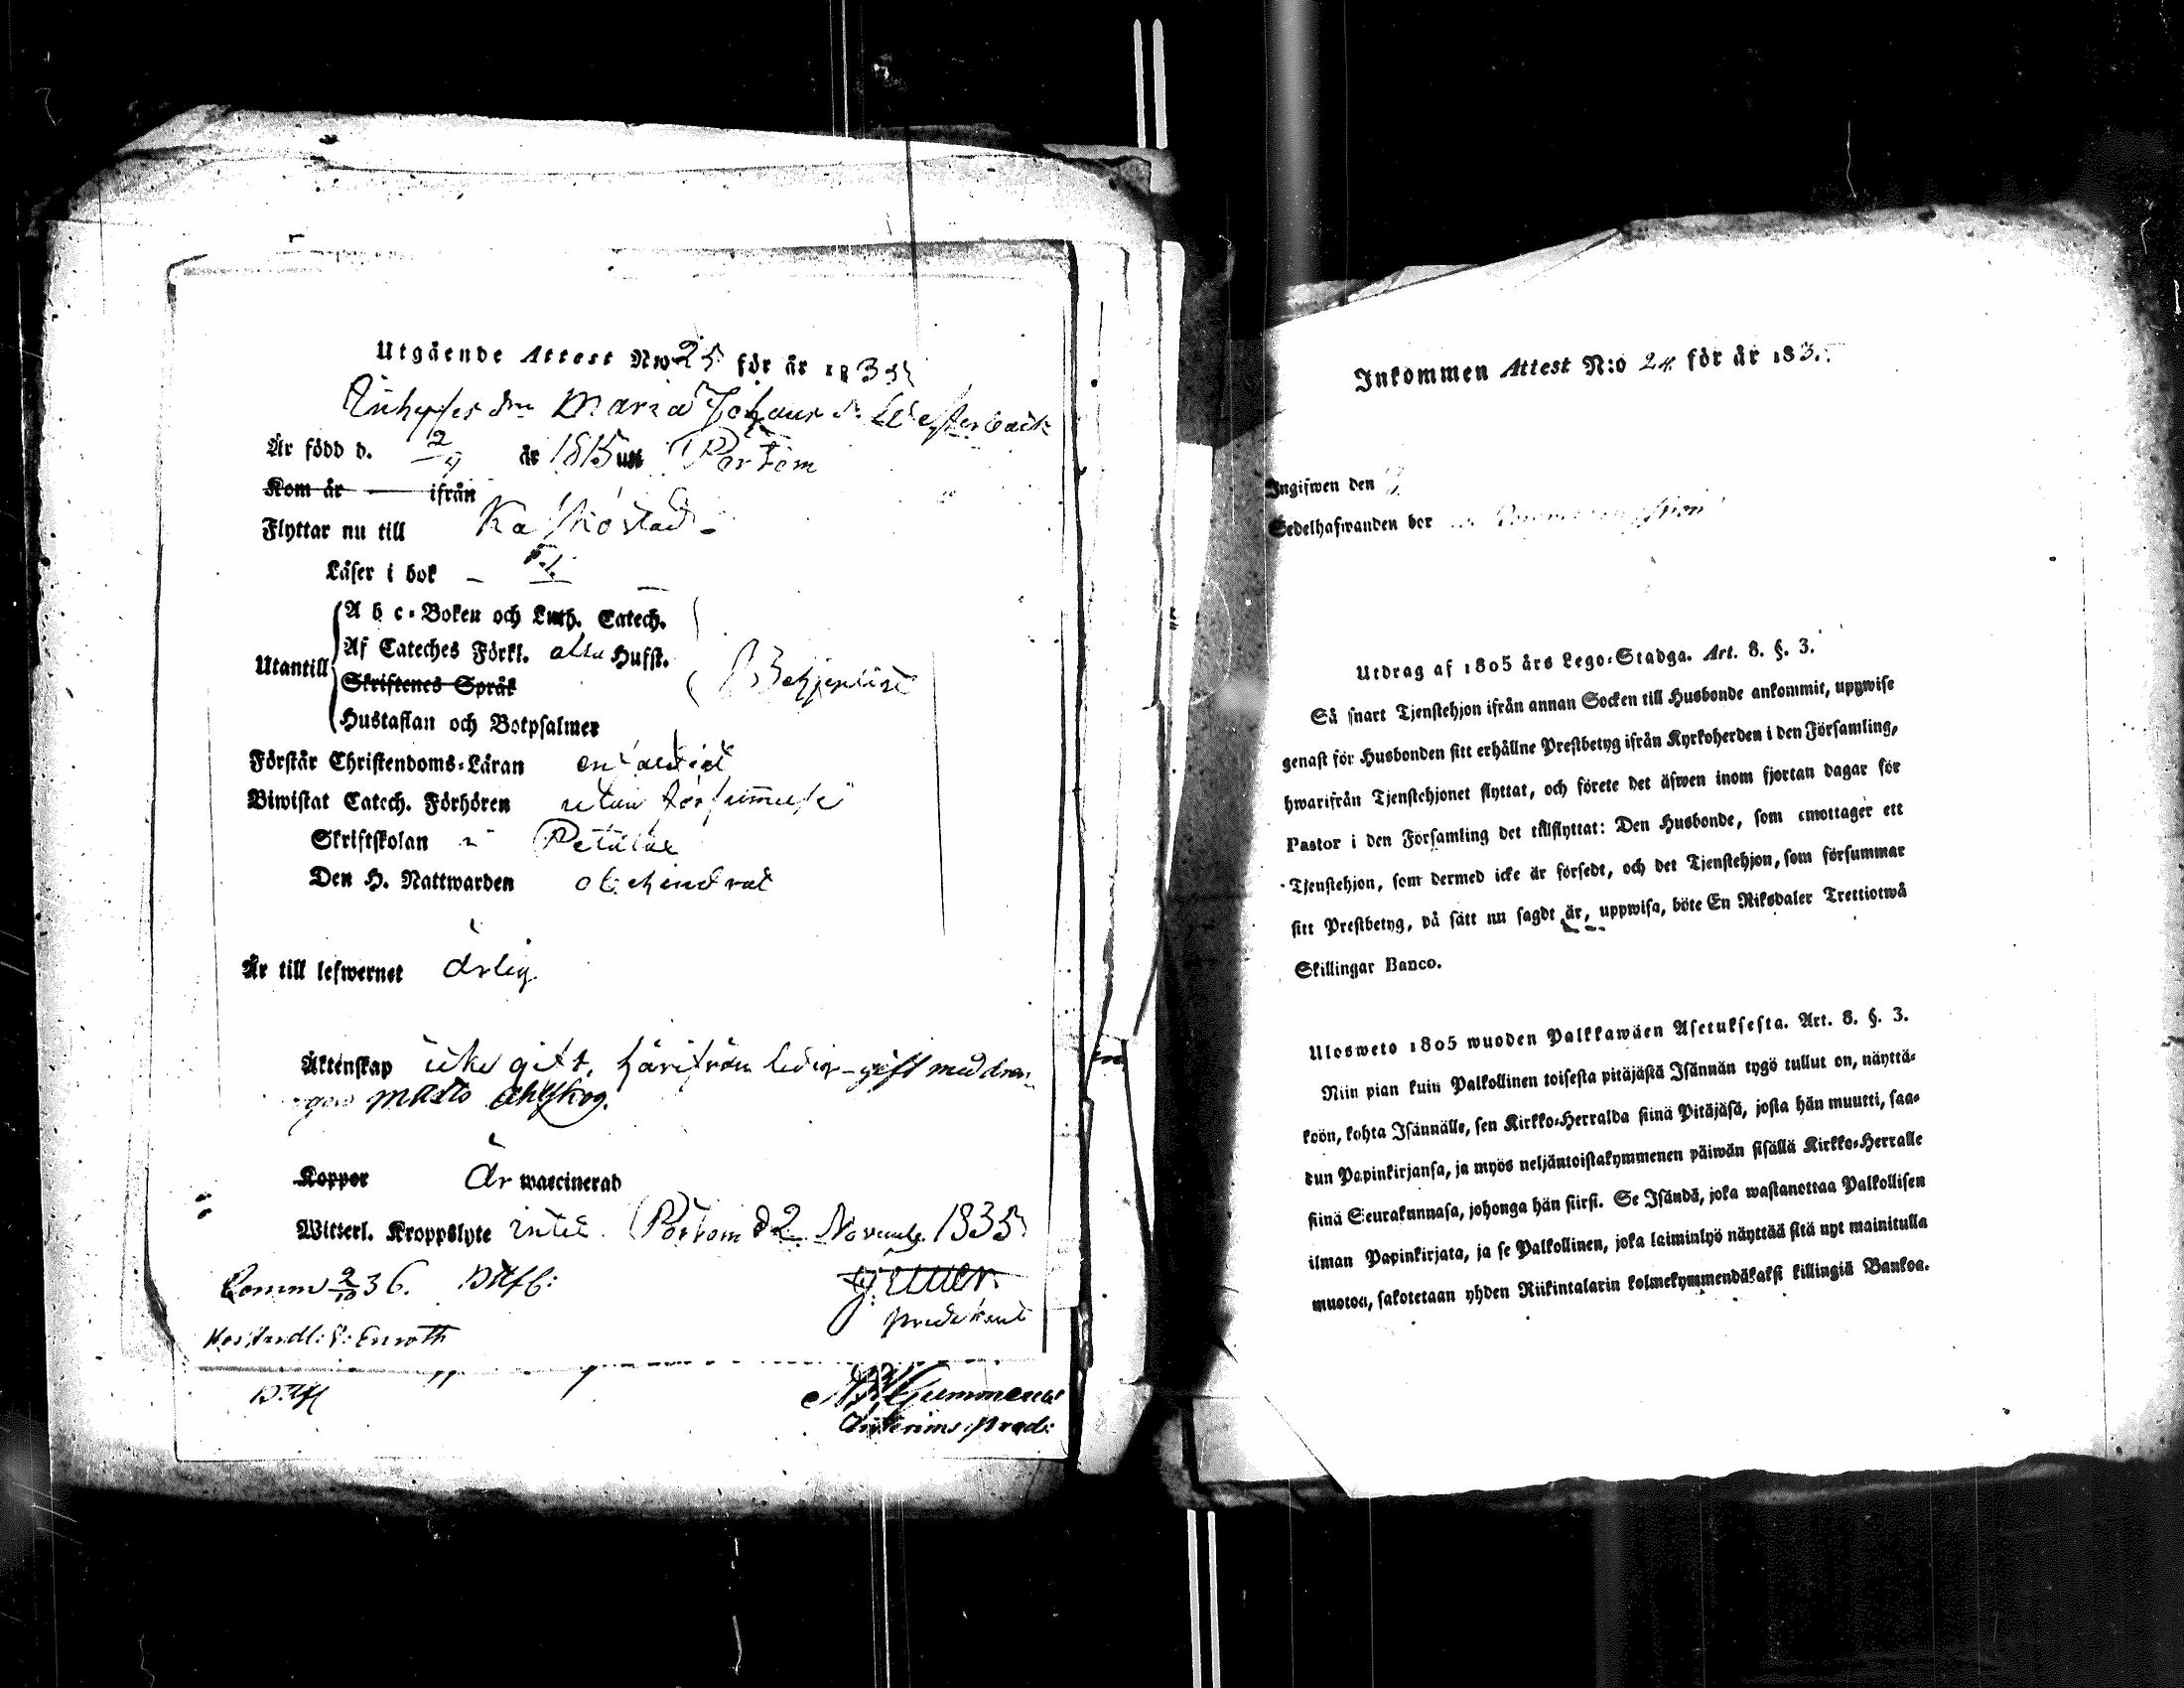 Utgående Attest N:o 25 för år 1835
Maria Johans dr Westerback
Är född d. 2/9 år 1815 uti Pörtom
Kom år — ifrån
Flyttar nu till Kaskö stad
Läser i bok
A b c-Boken och Luth. Catech.
Af Cateches Förkl. alla Hufst.
Utantill
Skriftenes Språk
Hustaflan och Botpsalmer
Förstår Christendoms-Läran
Biwistat Catech. Förhören utan försummelse
Skriftskolan
Den H. Nattwarden obehindrat
Är till lefwernet ärlig
Äktenskap icke gift, härifrån ledig - gift med
Matts
Koppor Är waccinerad
Witterl. Kroppslyte intet. Pörtom d 2 November 1835
Comm 2/10 36.
Enroth
Interims pred:
Inkommen Attest N:o 24 för år 183
Ingifwen den
Sedelhafwanden bor
Utdrag af 1805 års Lego-Stadga. Art. 8. §. 3.
Så snart Tjenstehjon ifrån annan Socken till Husbonde ankommit, uppwise
genast för Husbonden sitt erhållne Prestbetyg ifrån Kyrkoherden i den Församling,
hwarifrån Tjenstehjonet flyttat, och förete det äfwen inom fjortan dagar för
Pastor i den Församling det tillflyttat: Den Husbonde, som emottager ett
Tjenstehjon, som dermed icke är försedt, och det Tjenstehjon, som försummar
sitt Prestbetyg, på sätt nu sagdt är, uppwisa, böte En Riksdaler Trettiotwå
Skillingar Banco.
Ulosweto 1805 wuoden Palkkawäen Asetuksesta. Art. 8. §. 3.
Niin pian kuin Palkollinen toisesta pitäjästä Isännän tygö tullut on, näyttä-
köön, kohta Isännälle, sen Kirkko-Herralda siinä Pitäjäsä, josta hän muutti, saa-
dun Papinkirjansa, ja myös neljäntoistakymmenen päiwän sisällä Kirkko-Herralle
siinä Seurakunnasa, johonga hän siirsi. Se Isändä, joka wastanottaa Palkollisen
ilman Papinkirjata, ja se Palkollinen, joka laiminlyö näyttää sitä nyt mainitulla
muotoa, sakotetaan yhden Riikintalarin kolmekymmendäkaksi killingiä Bankoa.